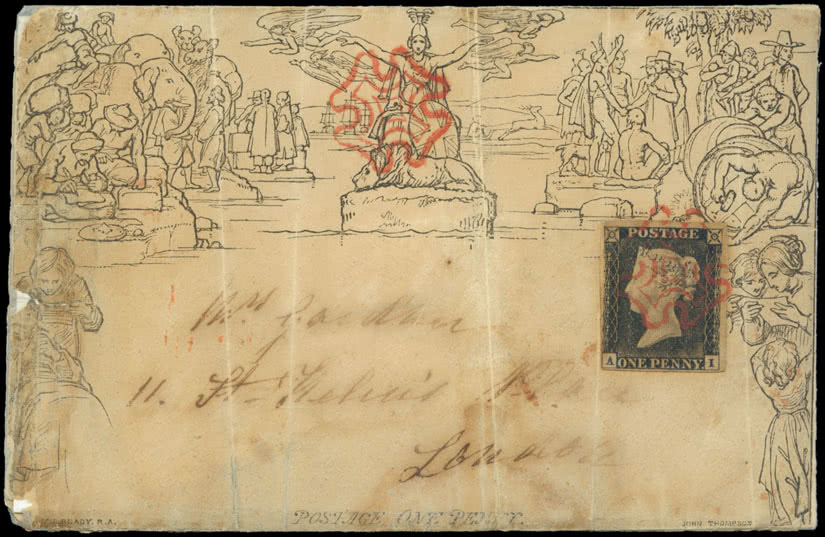 POSTAGE
A ONE PENNY I
Mrs
11. St Helen's Place
London
POSTAGE ONE PENNY.
READY. R.A.
JOHN THOMPSON